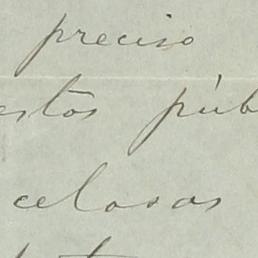 preciso
estos púb
celosas